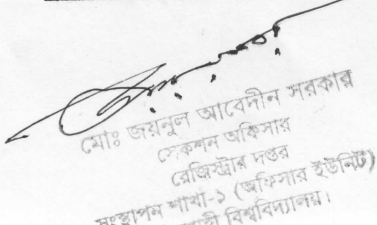 মোঃ জয়নুল আবেদীন সরকার
সেকশন অফিসার
রেজিস্ট্রার দপ্তর
সংস্থাপন শাখা-১ (অফিসার ইউনিট)
বিশ্ববিদ্যালয়।